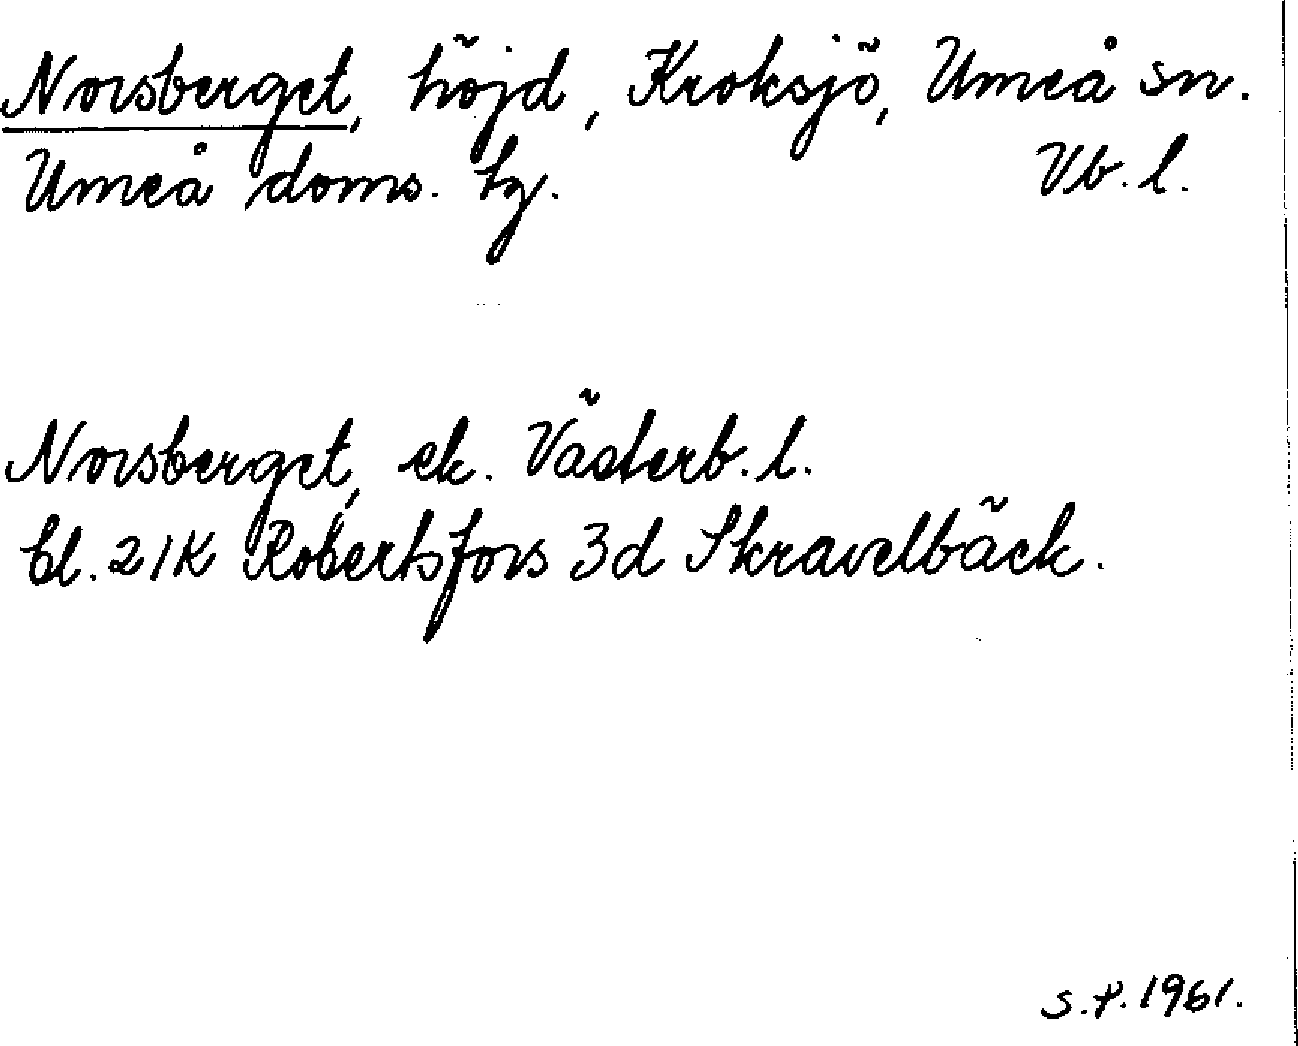 Norsberget, höjd, Kroksjö, Umeå sn.
Umeå doms. tg. Vb. l.
Norsberget, ek. Västerb. l.
bl. 21K Robertsfors 3d Skravelbäck.
S.P. 1961.